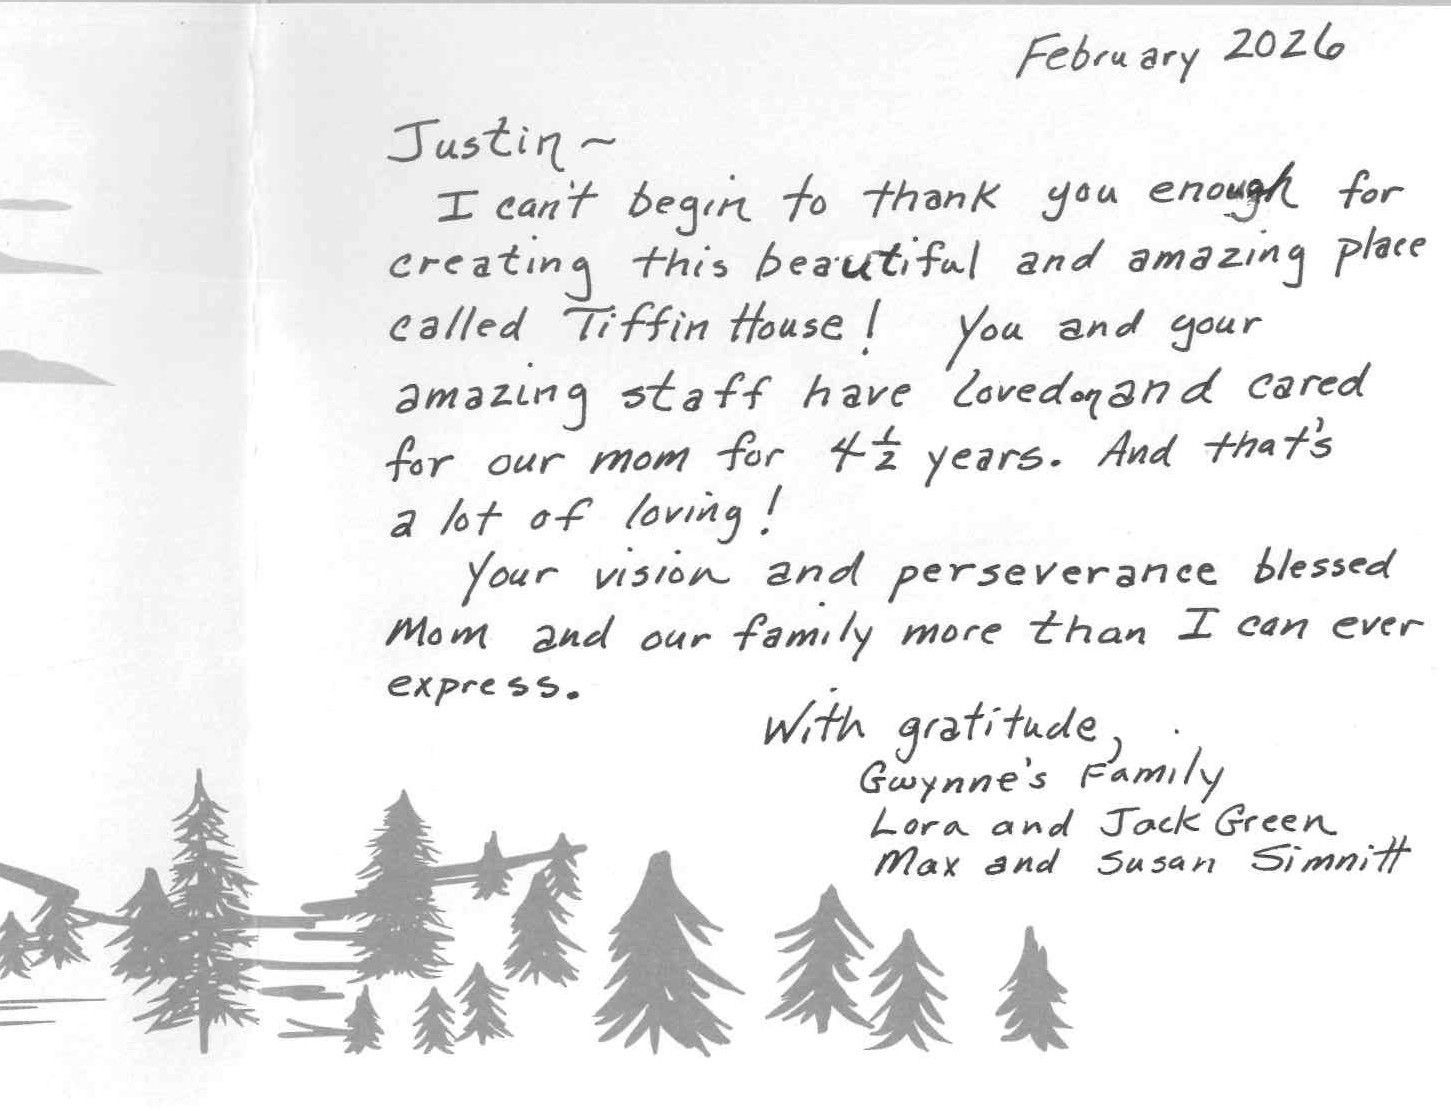 February 2026
Justin ~
I can't begin to thank you enough for
creating this beautiful and amazing place
called Tiffin House! You and your
amazing staff have loved on and cared
for our mom for 4 1/2 years. And that's
a lot of loving!
Your vision and perseverance blessed
Mom and our family more than I can ever
express.
With gratitude,
Gwynne's Family
Lora and Jack Green
Max and Susan Simnitt